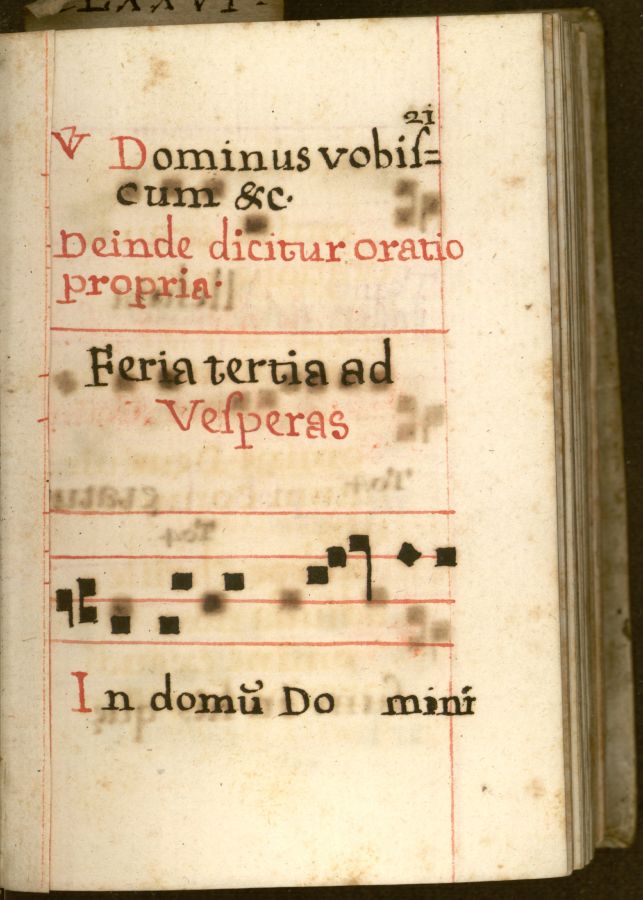 LXXVI
21
V Dominus vobiſ=
cum &c.
Deinde dicitur oratio
propria.
Feria tertia ad
Veſperas
In domū Do mini